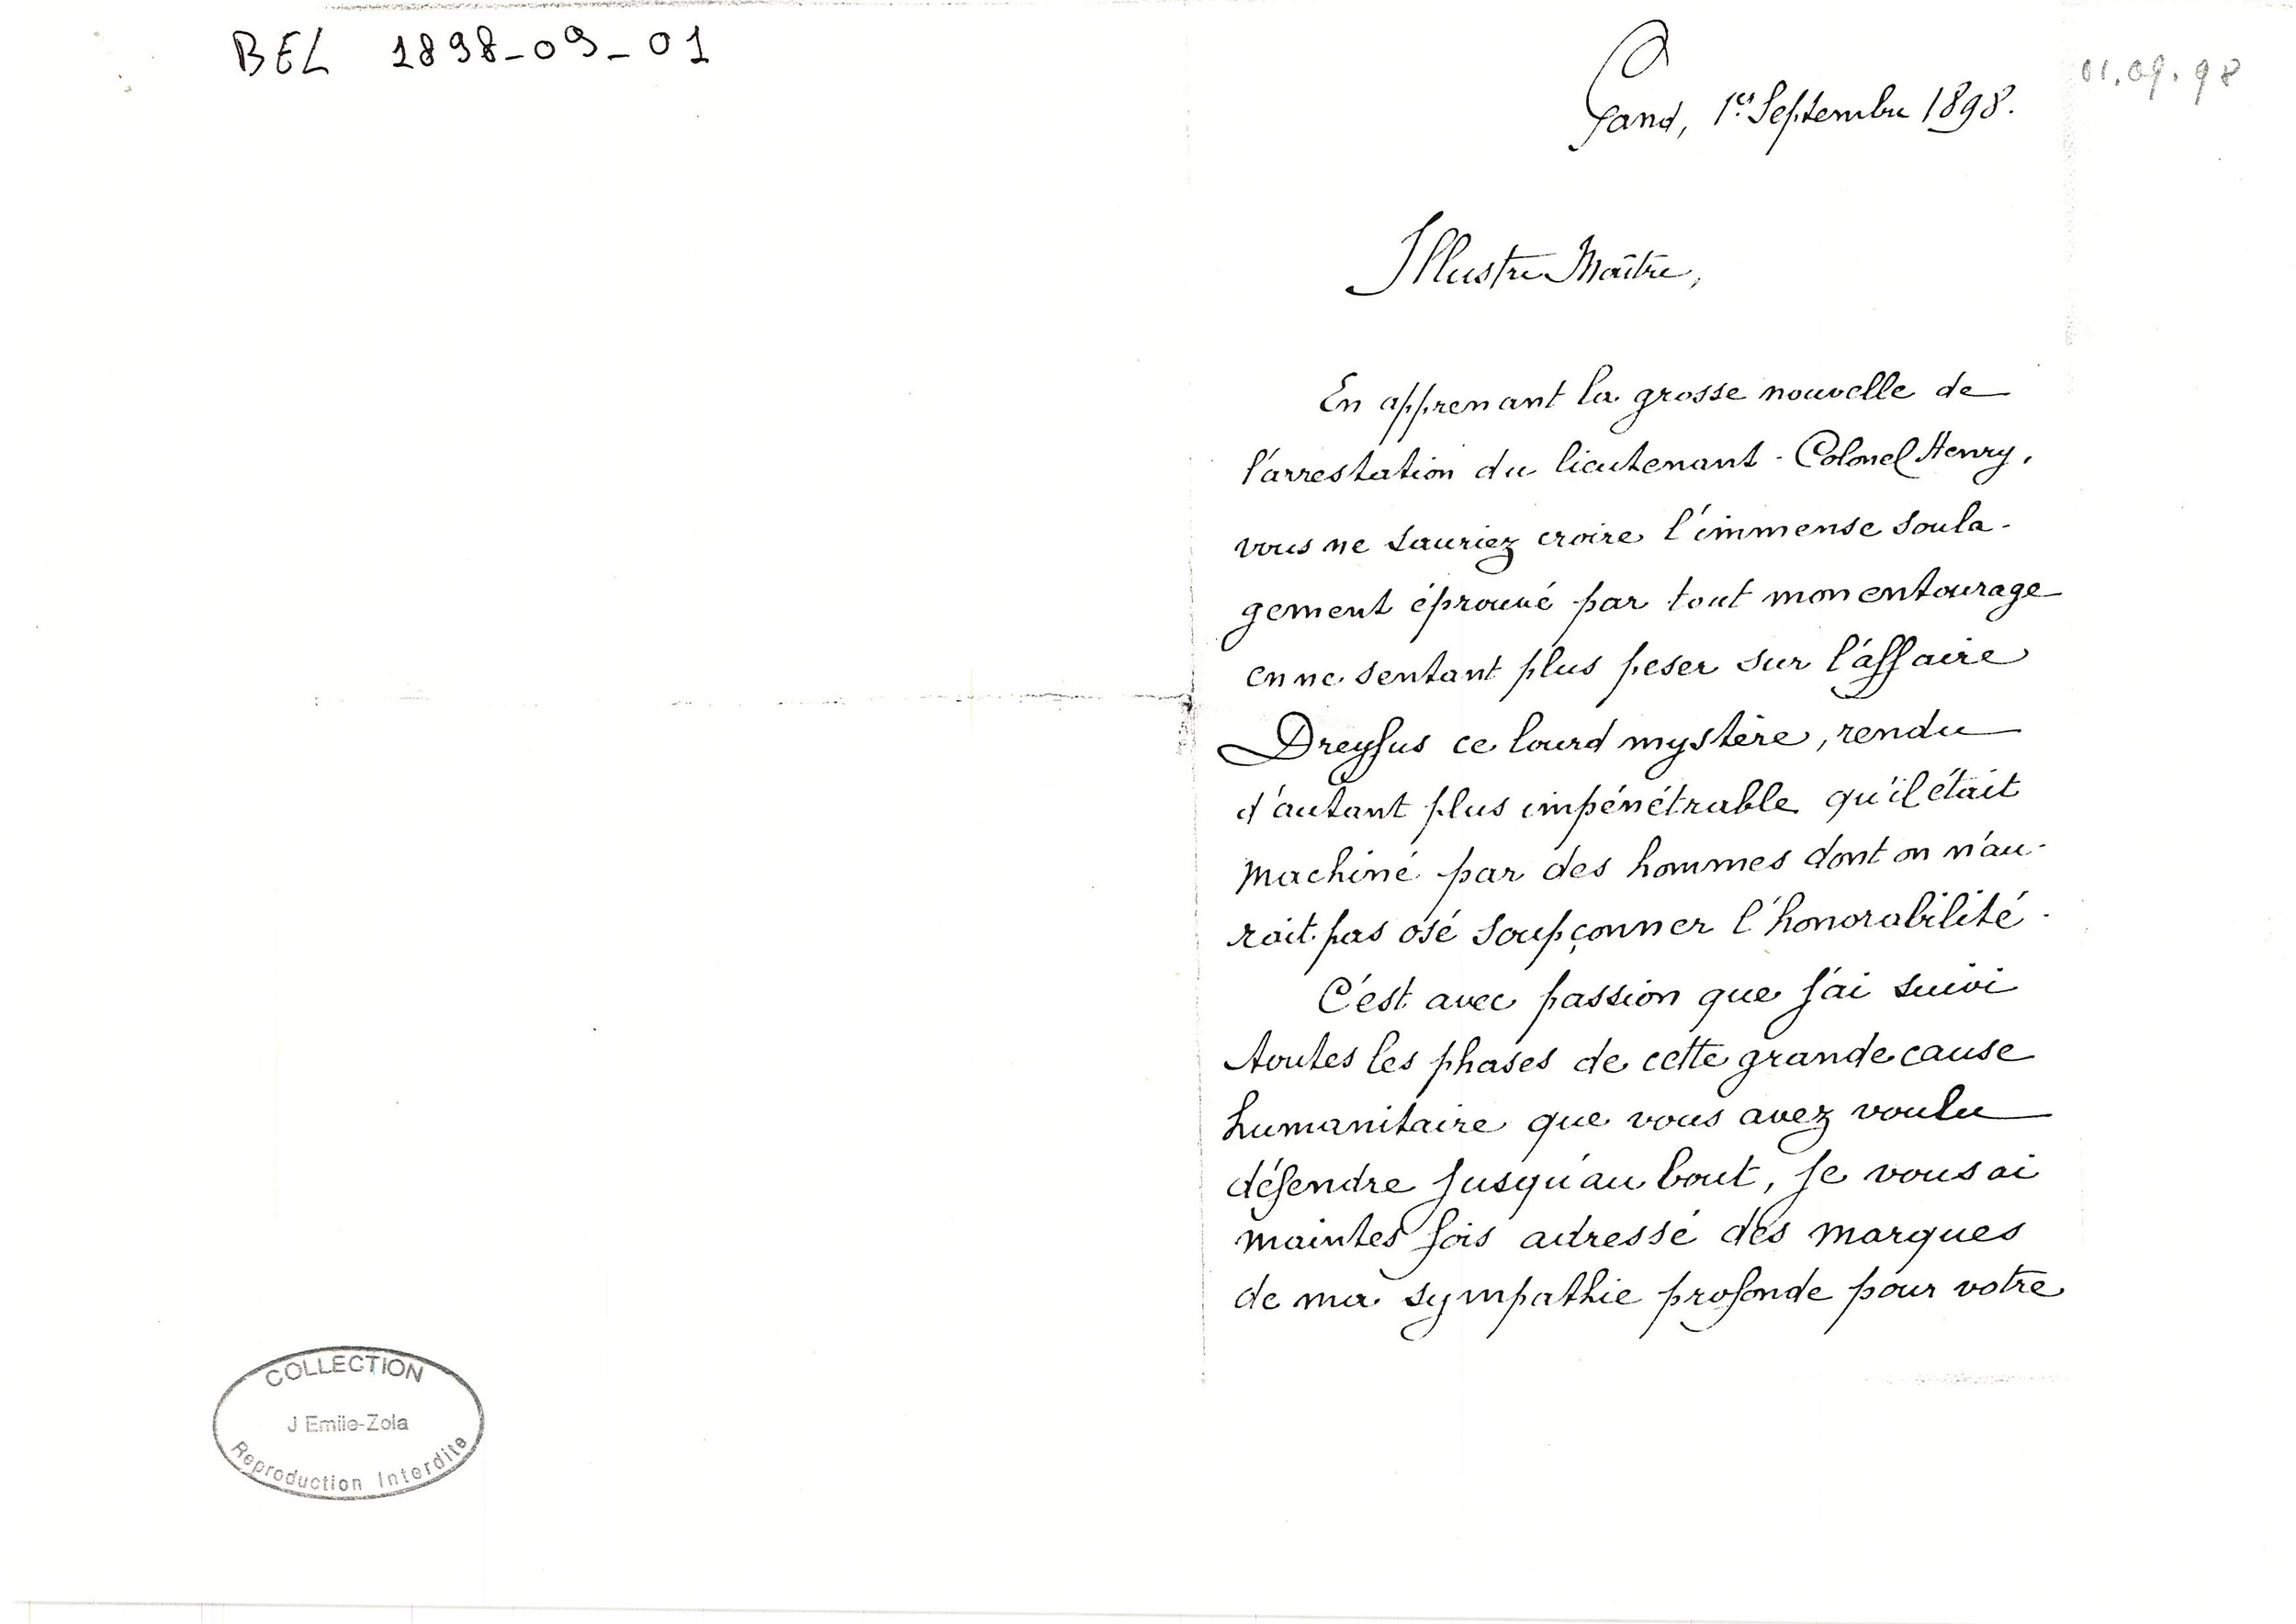 BEL 1898-09-01
01.09.98
Gand, 1er Septembre 1898.
Illustre Maître,
En apprenant la grosse nouvelle de
l'arrestation du lieutenant-Colonel Henry,
vous ne sauriez croire l'immense soula-
gement éprouvé par tout mon entourage
en ne sentant plus peser sur l'affaire
Dreyfus ce lourd mystère, rendu
d'autant plus impénétrable qu'il était
machiné par des hommes dont on n'au-
rait pas osé soupçonner l'honorabilité.
C'est avec passion que j'ai suivi
toutes les phases de cette grande cause
humanitaire que vous avez voulu
défendre jusqu'au bout, je vous ai
maintes fois adressé des marques
de ma sympathie profonde pour votre
COLLECTION
J Emile-Zola
Reproduction Interdite